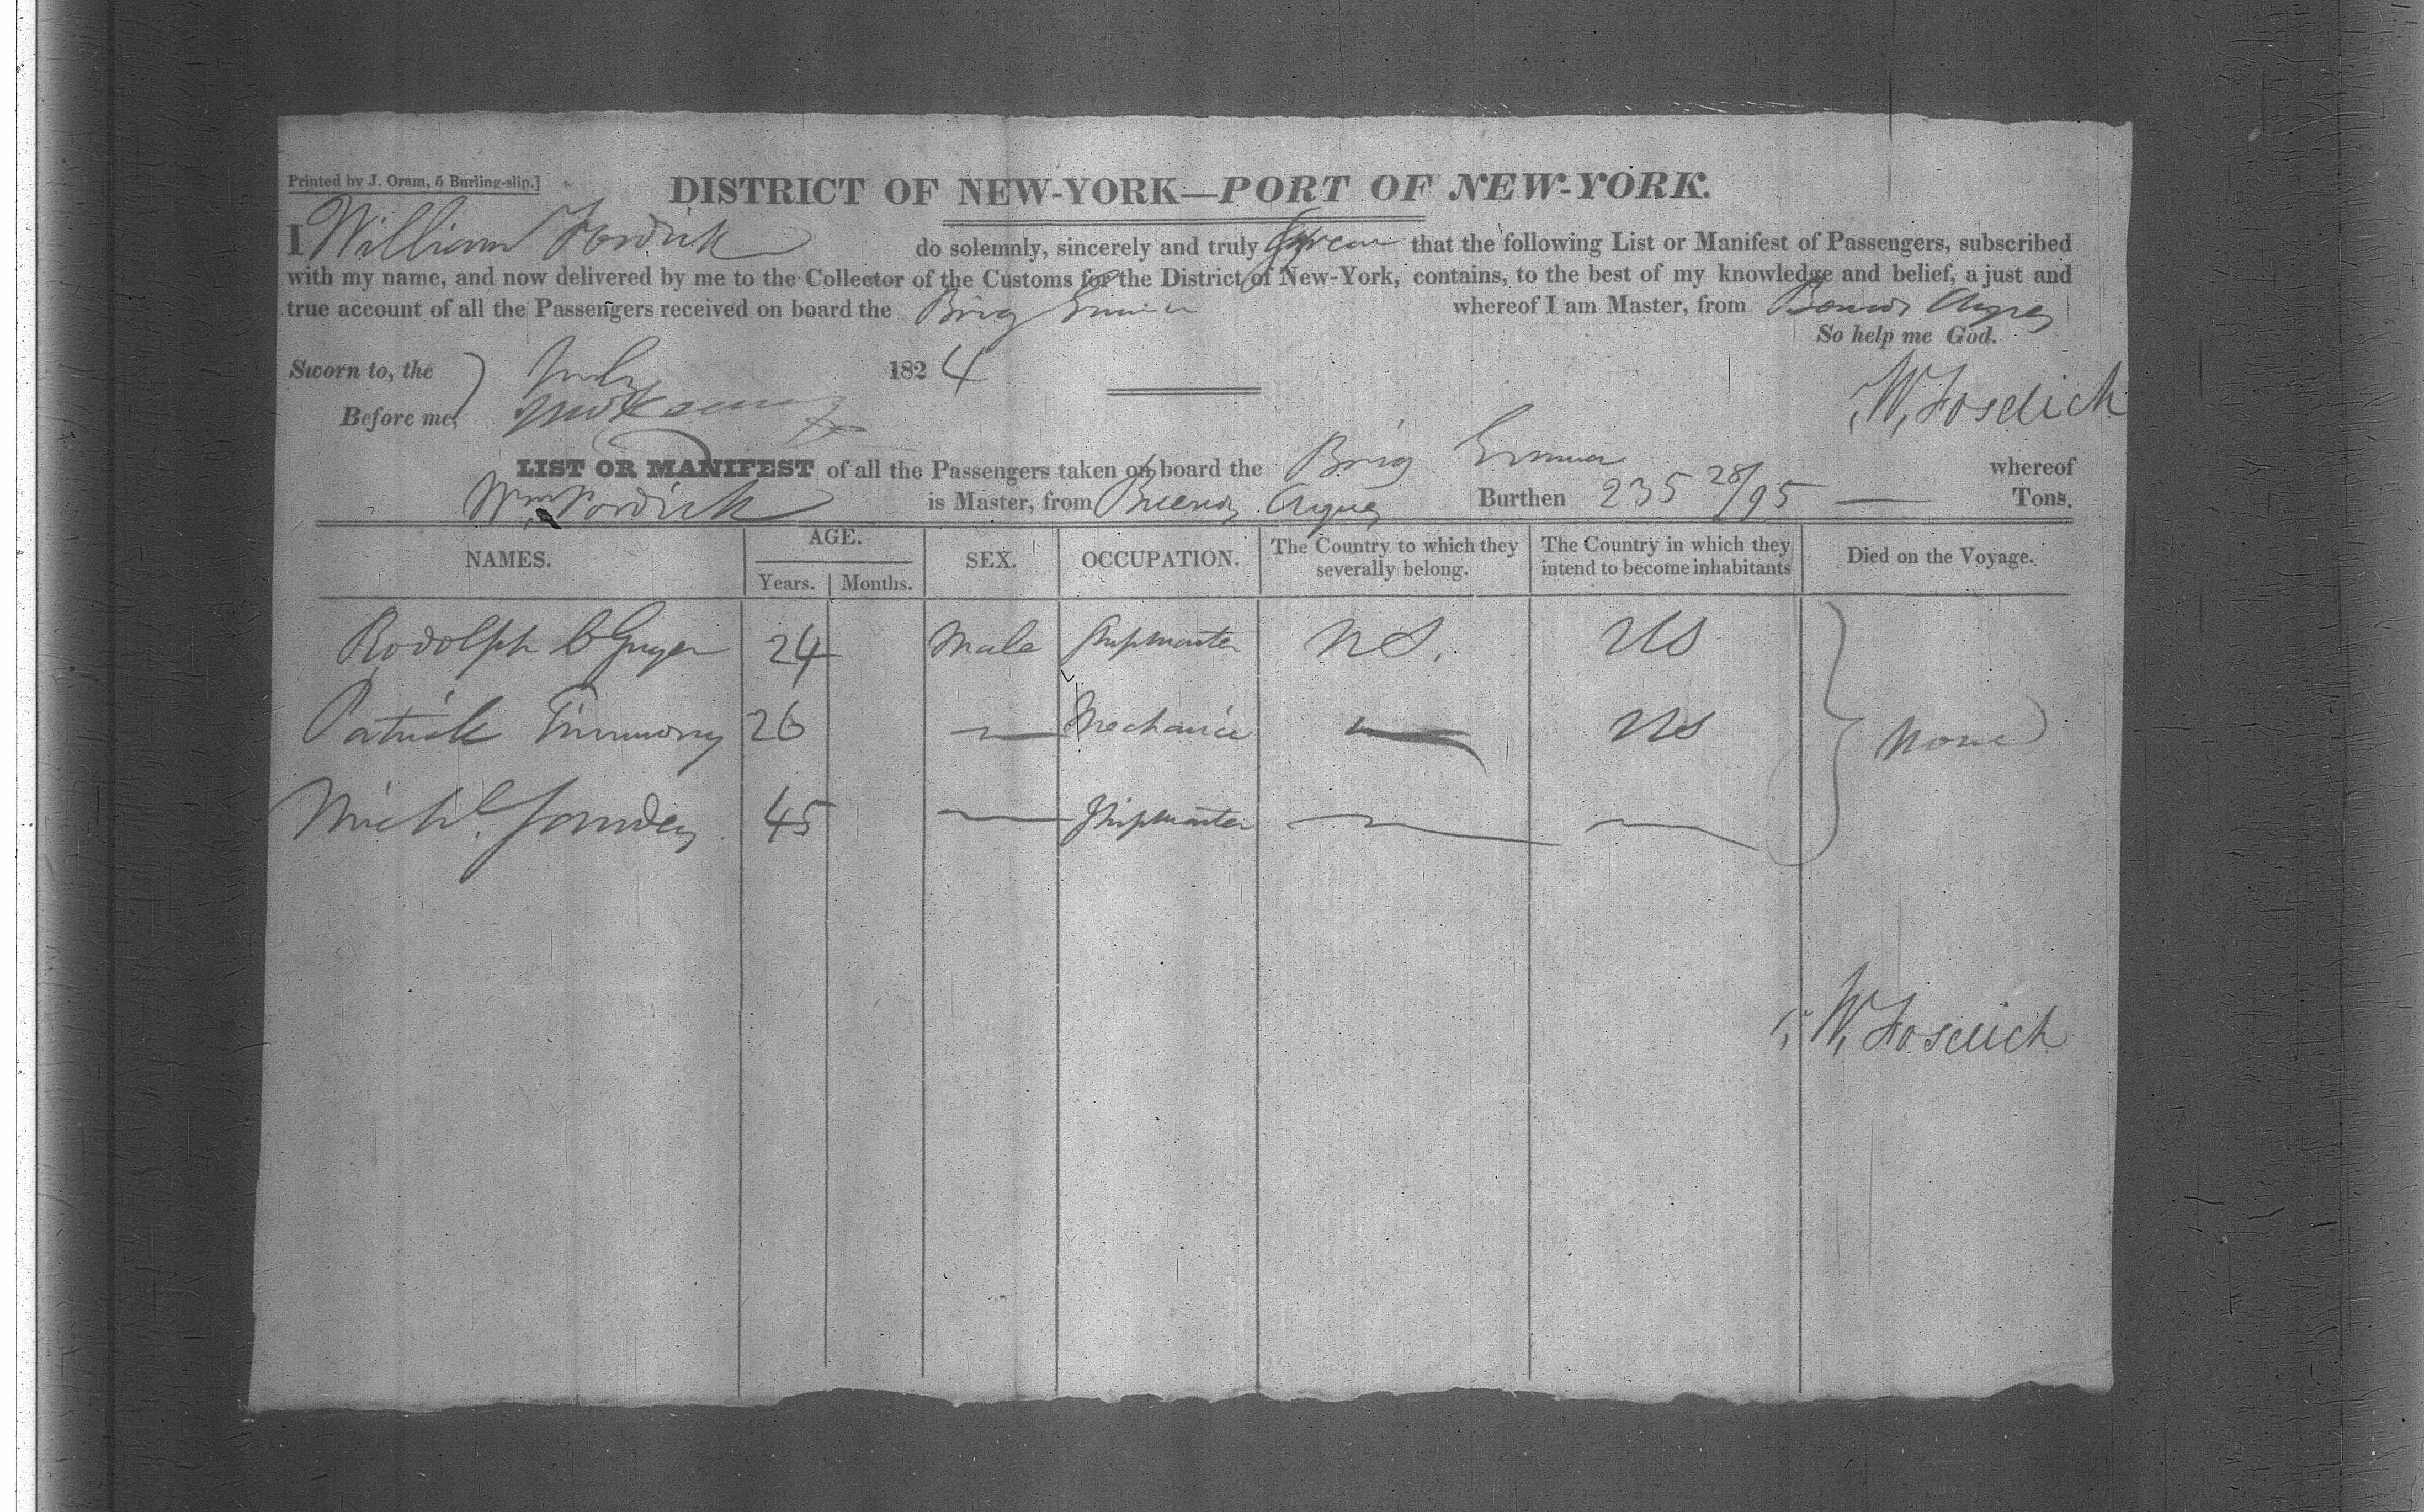 Printed by J. Oram, 5 Burling-slip.]
DISTRICT OF NEW-YORK—PORT OF NEW-YORK.
I William Fosdick do solemnly, sincerely and truly Swear that the following List or Manifest of Passengers, subscribed
with my name, and now delivered by me to the Collector of the Customs for the District of New-York, contains, to the best of my knowledge and belief, a just and
true account of all the Passengers received on board the Brig Emma whereof I am Master, from Buenos Ayres
So help me God.
Sworn to, the July 1824
Before me,
W, Fosdick
LIST OR MANIFEST of all the Passengers taken on board the Brig Emma whereof
Wm Fosdick is Master, from Buenos Ayres Burthen 235 28/95 Tons.
NAMES. AGE. SEX. OCCUPATION. The Country to which they severally belong. The Country in which they intend to become inhabitants Died on the Voyage.
Years. Months.
Rodolph Guyer 24 Male Shipmaster U S. US
Patrick Timmony 26 — Mechanic — US None
Michl. 45 — Shipmaster — —
W, Fosdick